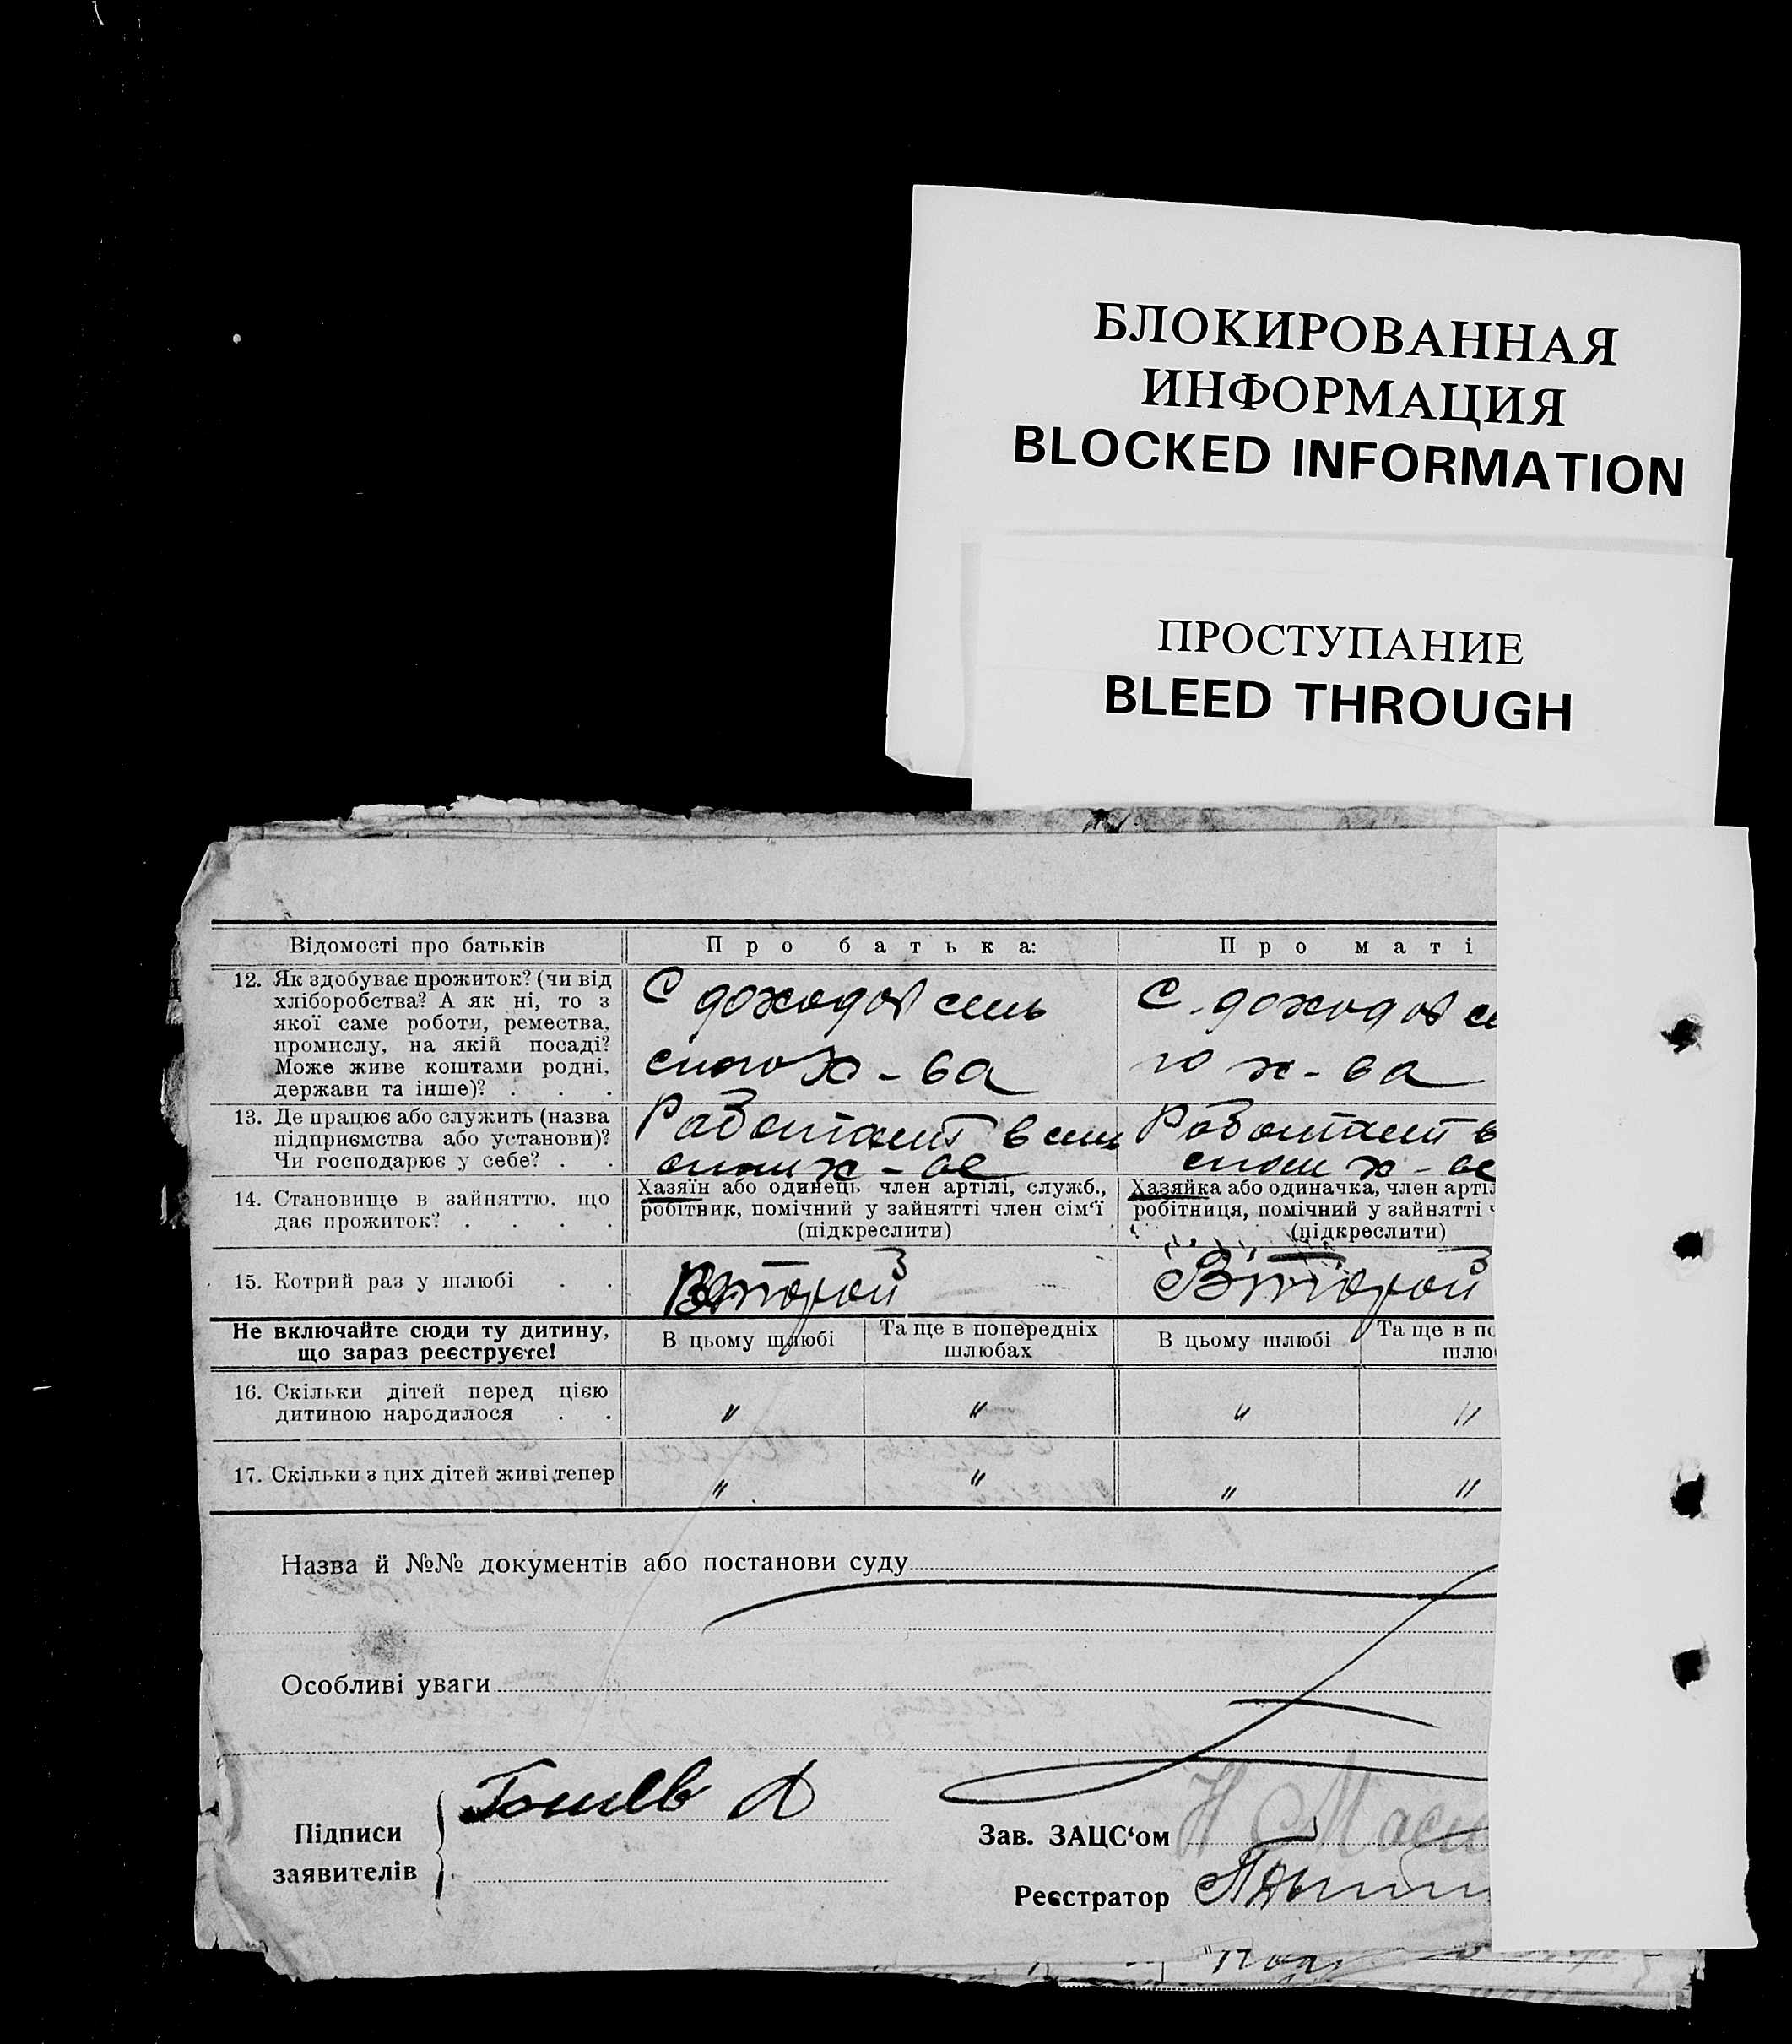 БЛОКИРОВАННАЯ
ИНФОРМАЦИЯ
BLOCKED INFORMATION
ПРОСТУПАНИЕ
BLEED THROUGH
Відомості про батьків
Про батька:
Про маті
12. Як здобуває прожиток? (чи від
хліборобства? А як ні, то з
якої саме роботи, ремества,
промислу, на якій посаді?
Може живе коштами родні,
держави та інше)? . . .
С доходов сель
ского х-ва
С доходов се
го х-ва
13. Де працює або служить (назва
підприємства або установи)?
Чи господарює у себе? . .
Работает в сель
ском х-ве
Работает в
ском х-ве
14. Становище в зайняттю, що
дає прожиток? . . . .
Хазяїн або одинець член артілі, служб.,
робітник, помічний у зайнятті член сім'ї
(підкреслити)
Хазяйка або одиначка, член артіл
робітниця, помічний у зайнятті ч
(підкреслити)
15. Котрий раз у шлюбі . .
Второй
Второй
Не включайте сюди ту дитину,
що зараз реєструєте!
В цьому шлюбі
Та ще в попередніх
шлюбах
В цьому шлюбі
Та ще в по
шлю
16. Скільки дітей перед цією
дитиною народилося . .
" " " "
17. Скільки з цих дітей живі тепер
" " " "
Назва й №№ документів або постанови суду
Особливі уваги
Підписи
заявителів
Зав. ЗАЦС'ом
Реєстратор